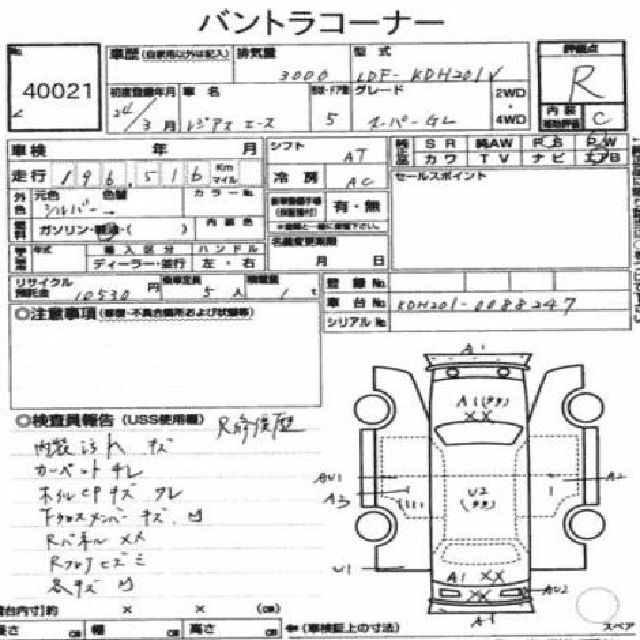 バントラコーナー
40021
車歴 (自家用以外は記入)
排気量 3000
型式 LDF-KDH201V
評価点 R
内装補助評価 C
初度登録年月 24/3月
車名 レジアスエース
形状・ドア数 5
グレード スーパーGL
2WD・4WD
車検 年 月
シフト AT
SR 純AW PS PW
カワ TV ナビ エアB
走行 196,516 Km マイル
冷房 AC
セールスポイント
外色 元色 シルバー 色替 カラーNo.
有・無
燃料 ガソリン・軽油・( ) 内装色
名義変更期限 月 日
年式 輸入区分 ハンドル
ディーラー・並行 左・右
リサイクル預託金 10530円
乗車定員 5人
積載量 1t
登録No.
車台No. KDH201-0088247
シリアルNo.
◎注意事項 (修復・不具合箇所および状態等)
◎検査員報告 (USS使用欄) R修復歴
内装汚れ キズ
カーペットキレ
R パネル XX
A1
A1
XX
AU1
A3
U2
A2
U1
A1 XX
XX
AU2
A1
荷台内寸約 × × (cm)
長さ cm 幅 cm 高さ cm ←(車検証上の寸法)
スペア